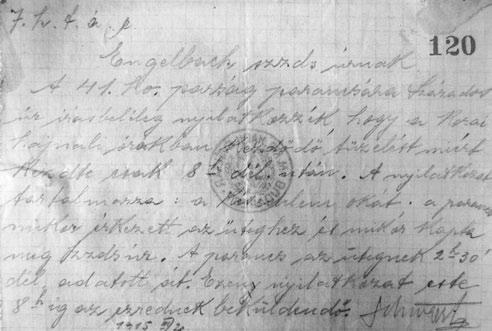 7. hv. t. á. p.
120
Engelbach szds úrnak
A 41. ho. parság parancsára Százados
úr írásbelileg nyilatkozzék hogy a korai
hajnali órákban kezdődő tüzelést miért
kezdte csak 8h dél. után. A nyilatkozat
tartalmazza: a késedelem okát. a parancs
mikor érkezett az üteghez és mikor kapta
meg szdzúr. A parancs az ütegnek 2h 30'
dél. adatott át. Ezen nyilatkozat este
8h ig az ezrednek beküldendő.
1915